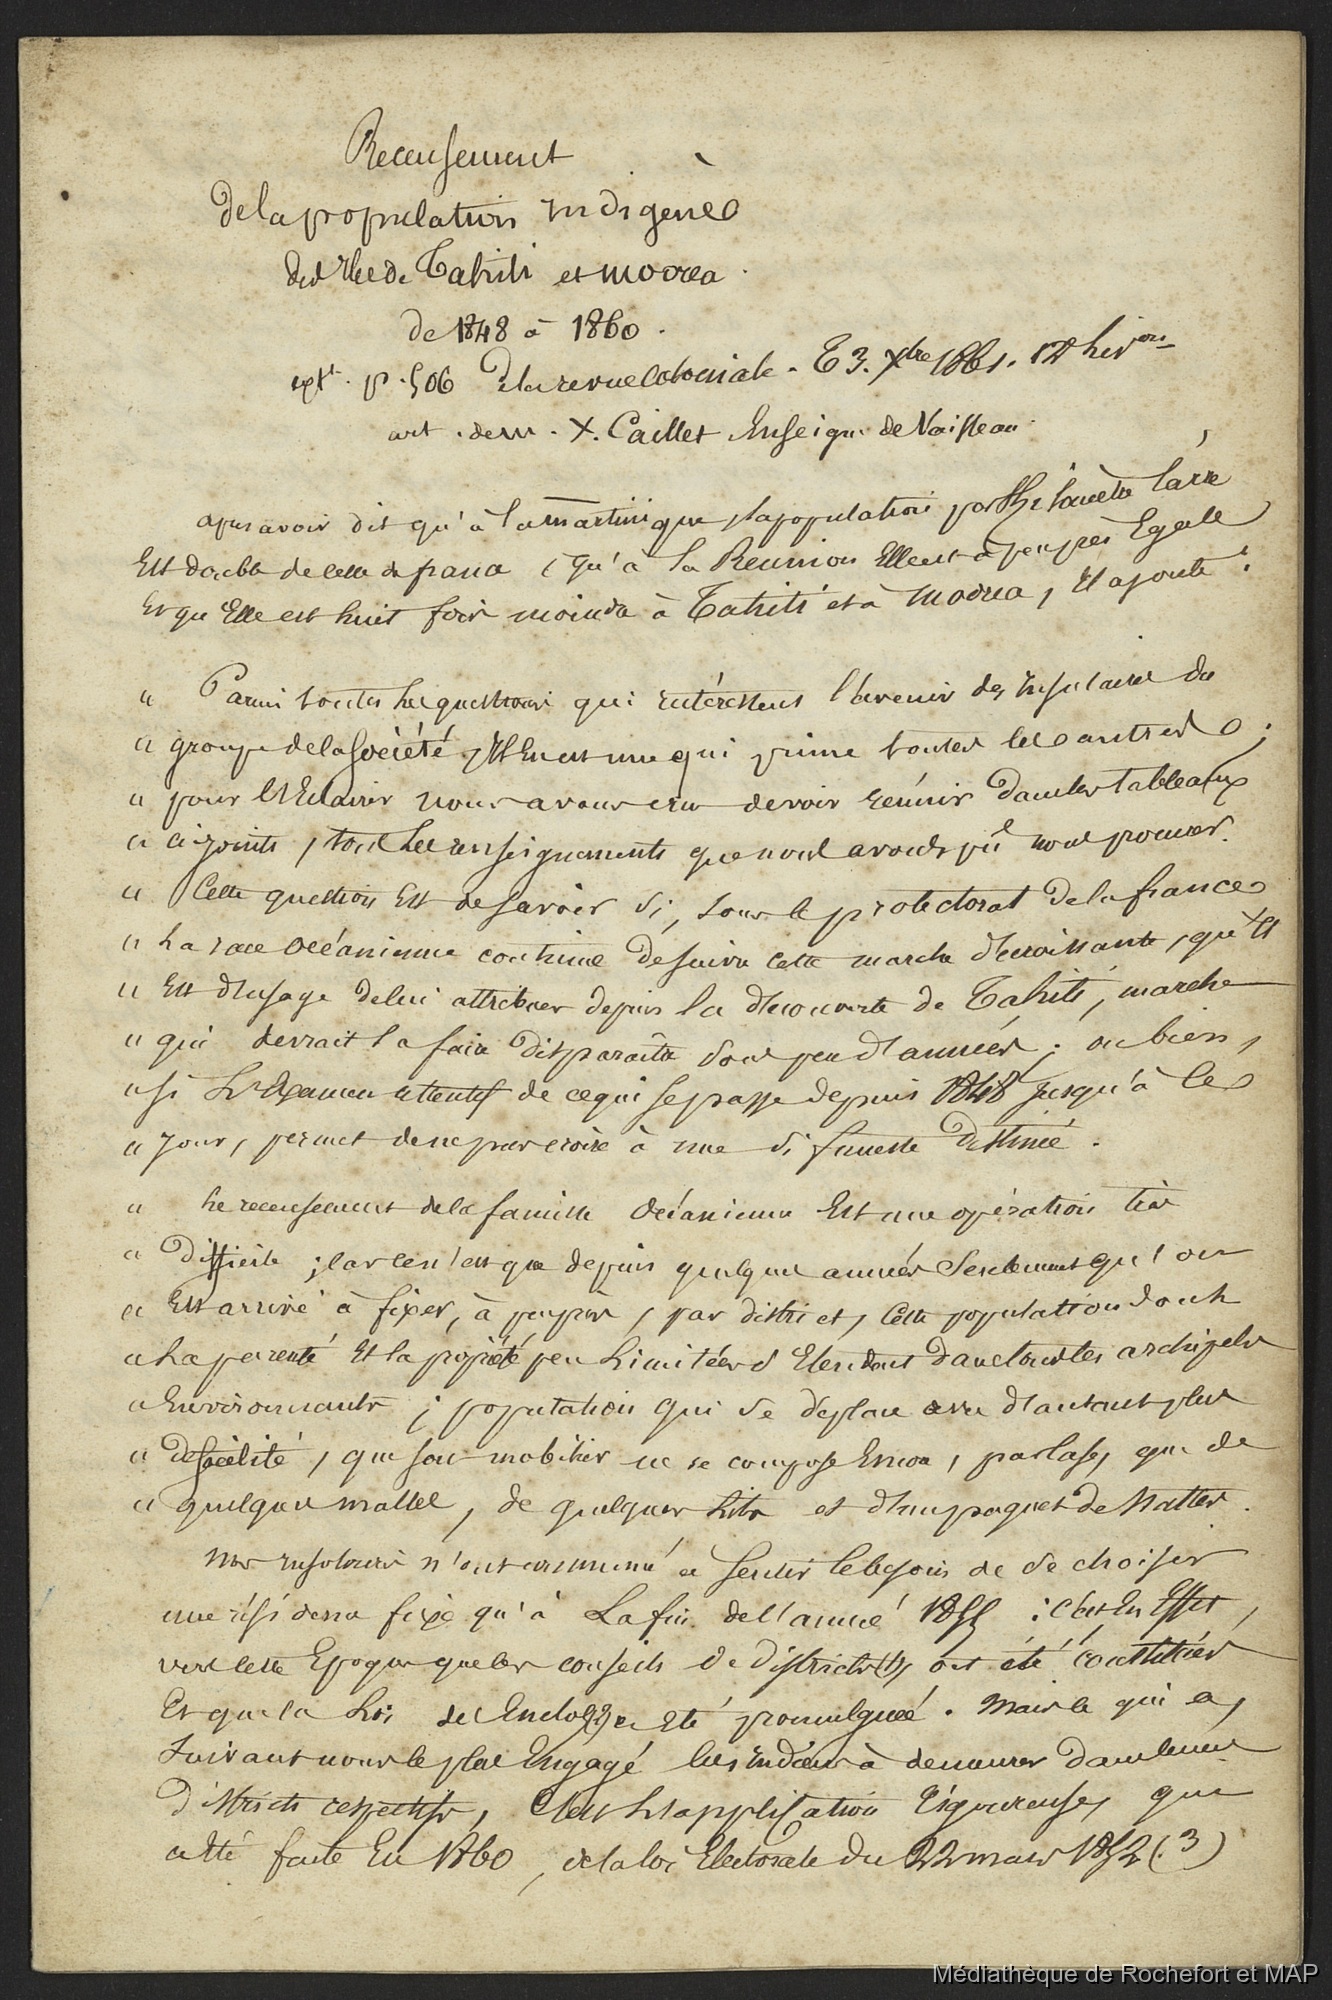 Recensement
de la population indigène
des Iles de Tahiti et moorea.
de 1848 à 1860.
ext. p. 506 de la revue Coloniale. T 3. Xbre 1861. 12e livon
art. de m. X. Caillet Enseigne de Vaisseau.
après avoir dit qu'à la martinique, la population par kilomètre carré
Est double de celle de france, qu'à la Réunion Elle est à peu près Egale
Et qu'Elle est huit fois moindre à Tahiti et à moorea, il ajoute :
" Parmi toutes les questions qui intéressent l'avenir des insulaires du
" groupe de la Société, il En est une qui prime toutes les autres ;
" pour l'Eclairer nous avons cru devoir réunir dans les tableaux
" ci-joints, tous les renseignements que nous avons pu nous procurer.
" Cette question Est de savoir si, sous le protectorat de la france
" la race océanienne continue de suivre cette marche décroissante, qu'il
" Est d'usage de lui attribuer depuis la découverte de Tahiti, marche
" qui devrait la faire disparaître sous peu d'années ; ou bien,
" si l'Examen attentif de ce qui se passe depuis 1848 jusqu'à ce
" jour, permet de ne pas croire à une si funeste destinée.
" Le recensement de la famille océanienne Est une opération très
" difficile ; car ce n'est que depuis quelques années seulement qu'on
" Est arrivé à fixer, à peu près, par district, cette population dont
" la parenté Et la propriété peu limitées s'étendent dans tous les archipels
" Environnants ; population qui se déplace avec d'autant plus
" de facilité, que son mobilier ne se compose Encore, par case, que de
" quelques malles, de quelques lits et d'un paquet de nattes.
Nos insulaires n'ont commencé à sentir le besoin de se choisir
une résidence fixe qu'à la fin de l'année 1855 : c'est En Effet,
vers cette Epoque que les conseils de districts (1) ont été constitués
Et que la loi des Enclos (2) a Eté promulguée. Mais ce qui a,
suivant nous le plus Engagé les indiens à demeurer dans leurs
districts respectifs, c'est l'application rigoureuse, qui
a Eté faite En 1860, de la loi Electorale du 22 mars 1852 (3)
Médiathèque de Rochefort et MAP